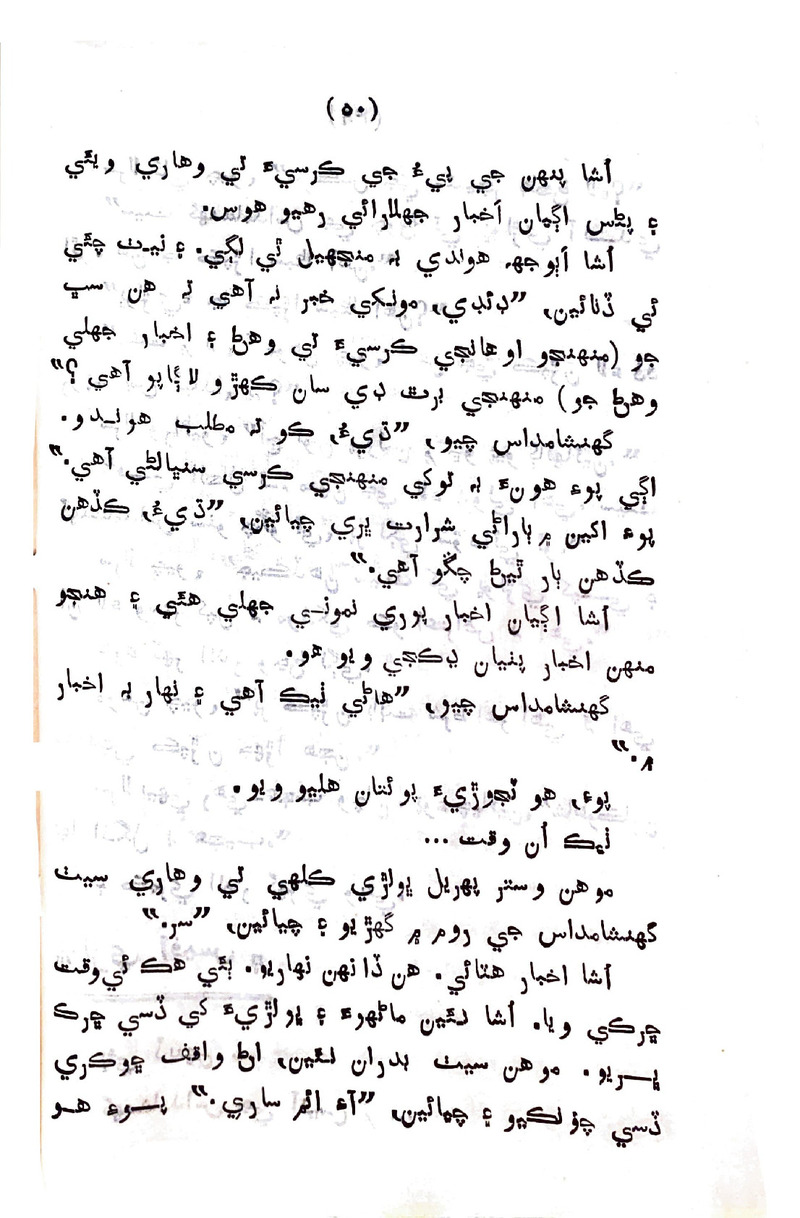 (٥٠)
اُشا پنهن جي پيءُ جي ڪرسيءَ تي وهاري ويئي
۽ پڻس اڳيان اَخبار جهلارائي رهيو هوس.
اُشا اَٻوجهہ هوندي بہ منجهيل ٿي لڳي. ۽ نيٺ چئي
ئي ڏنائين، ”ڊئڊي، مونکي خبر نہ آهي تہ هن سڀ
جو (منهنجو اوهانجي ڪرسيءَ تي وهڻ ۽ اخبار جهلي
وهڻ جو) منهنجي برٿ ڊي سان ڪهڙو لاڳاپو آهي؟“
گهنشامداس چيو، ”ڌيءُ، ڪو تہ مطلب هوندو.
اڳي پوءِ هونءَ بہ توکي منهنجي ڪرسي سنڀالڻي آهي.“
پوءِ اکين ۾ ٻاراڻي شرارت ڀري چيائين، ”ڌيءُ، ڪڏهن
ڪڏهن ٻار ٿيڻ چڱو آهي.“
اُشا اڳيان اخبار پوري نموني جهلي هئي ۽ هنجو
منهن اخبار پٺيان ڍڪجي ويو هو.
گهنشامداس چيو، ”هاڻي ٺيڪ آهي ۽ نهار بہ اخبار
۾.“
پوءِ، هو تجوڙيءَ پوئتان هليو ويو.
ٺيڪ اُن وقت...
موهن وستر پهريل پولڙي ڪلهي تي وهاري سيٺ
گهنشامداس جي روم ۾ گهڙيو ۽ چيائين، ”سر.“
اُشا اخبار هٽائي. هن ڏانهن نهاريو. ٻئي هڪ ئي وقت
ڇرڪي ويا. اُشا نئين ماڻهوءَ ۽ ڀولڙيءَ کي ڏسي ڇرڪ
ڀــريو. موهن سيٺ بدران نئين، اڻ واقف ڇوڪري
ڏسي چؤنڪيو ۽ چيائين، ”آءِ ائم ساري.“ پــوءِ هــو